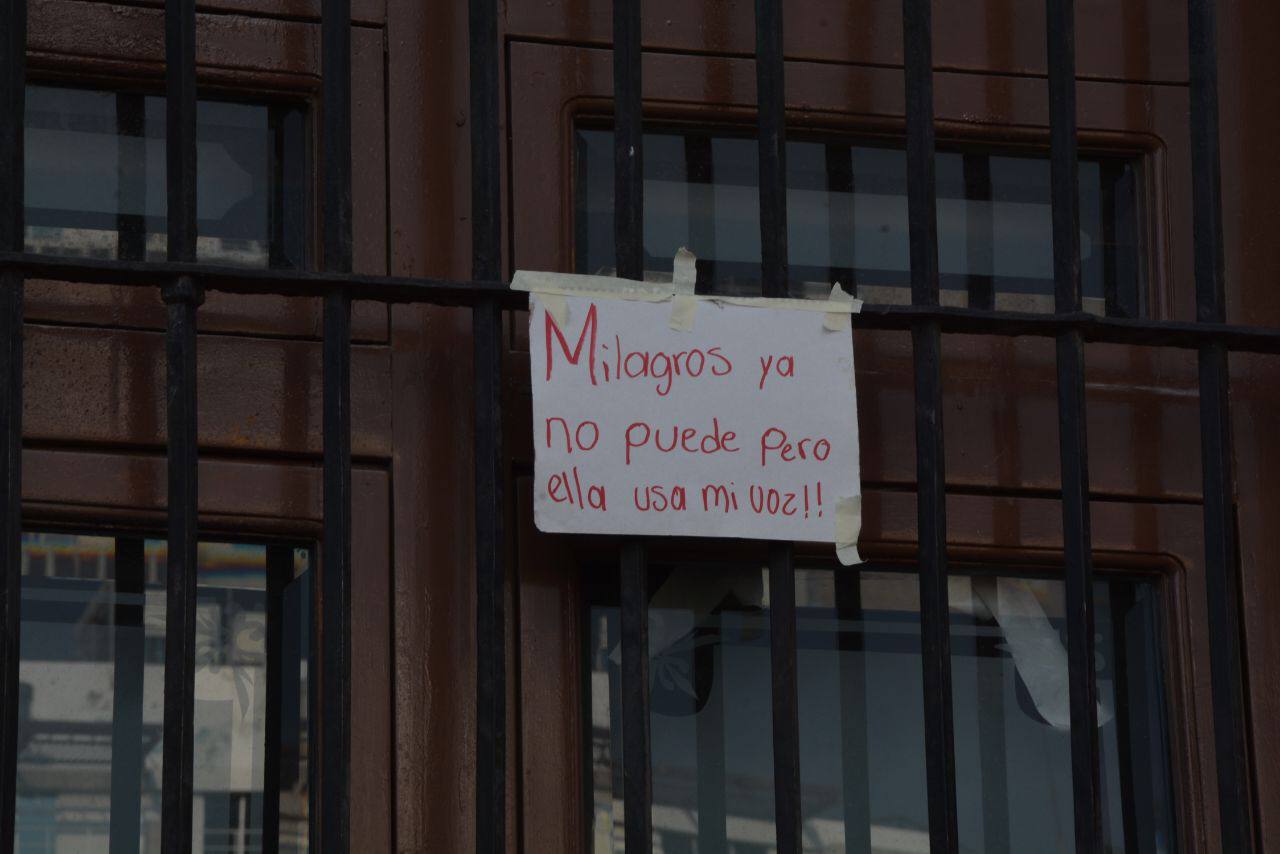 Milagros ya
no puede pero
ella usa mi voz!!